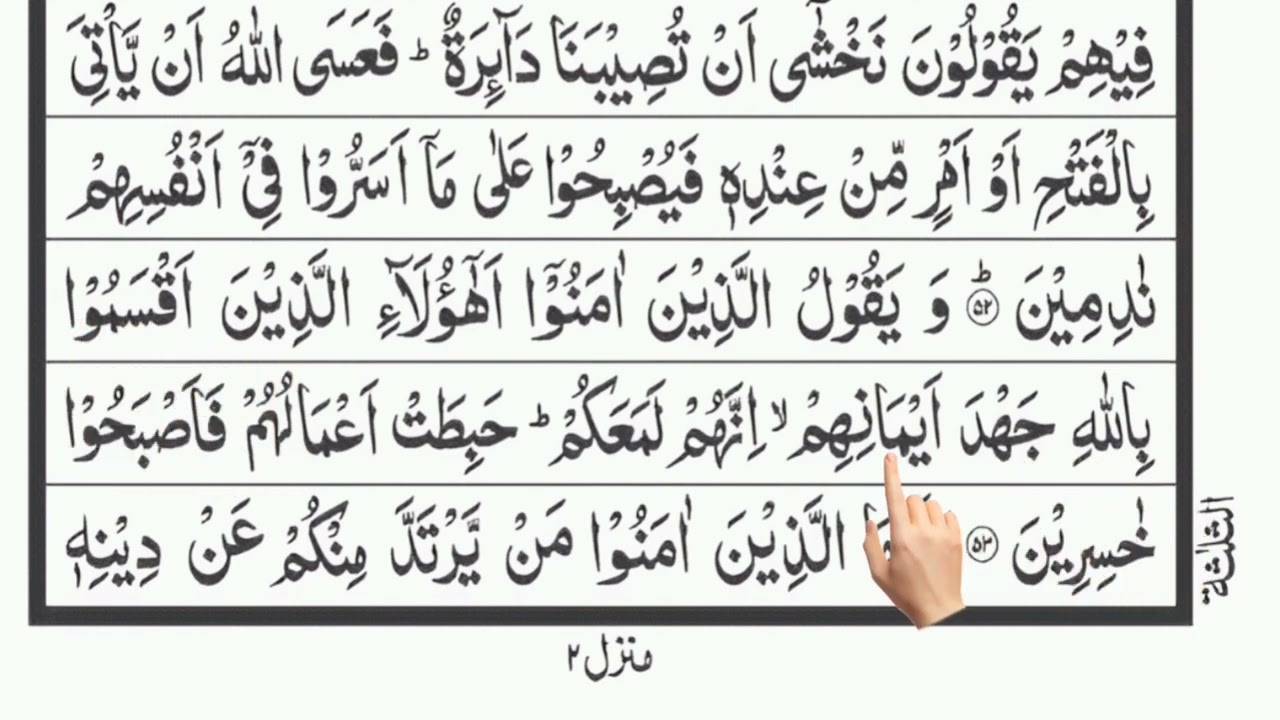 فِيْهِمْ يَقُوْلُوْنَ نَخْشٰٓى اَنْ تُصِيْبَنَا دَآئِرَةٌ ؕ فَعَسَى اللّٰهُ اَنْ يَّاْتِىَ
بِالْفَتْحِ اَوْ اَمْرٍ مِّنْ عِنْدِهٖ فَيُصْبِحُوْا عَلٰى مَاۤ اَسَرُّوْا فِىْۤ اَنْفُسِهِمْ
نٰدِمِيْنَ ؕ ﴿۵۲﴾ وَ يَقُوْلُ الَّذِيْنَ اٰمَنُوْۤا اَهٰۤؤُلَآءِ الَّذِيْنَ اَقْسَمُوْا
بِاللّٰهِ جَهْدَ اَيْمَانِهِمْ ۙ اِنَّهُمْ لَمَعَكُمْ ؕ حَبِطَتْ اَعْمَالُهُمْ فَاَصْبَحُوْا
خٰسِرِيْنَ ﴿۵۳﴾ الَّذِيْنَ اٰمَنُوْا مَنْ يَّرْتَدَّ مِنْكُمْ عَنْ دِيْنِهٖ
الثلثة
منزل ۲